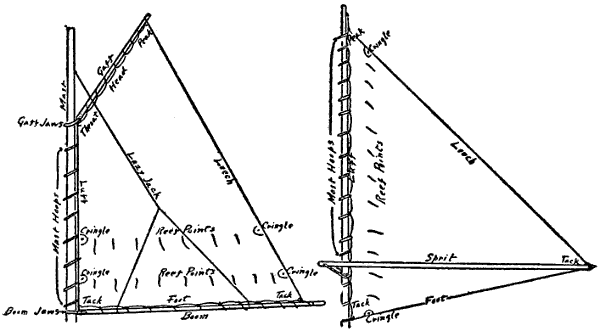 Mast
Gaff Jaws
Throat
Gaff
Head
Peak
Mast Hoops
Luff
Lazy Jack
Leech
Cringle
Reef Points
Cringle
Cringle
Reef Points
Cringle
Tack
Foot
Tack
Boom Jaws
Boom
Peak
Cringle
Mast Hoops
Luff
Reef Points
Leech
Sprit
Tack
Tack
Foot
Cringle